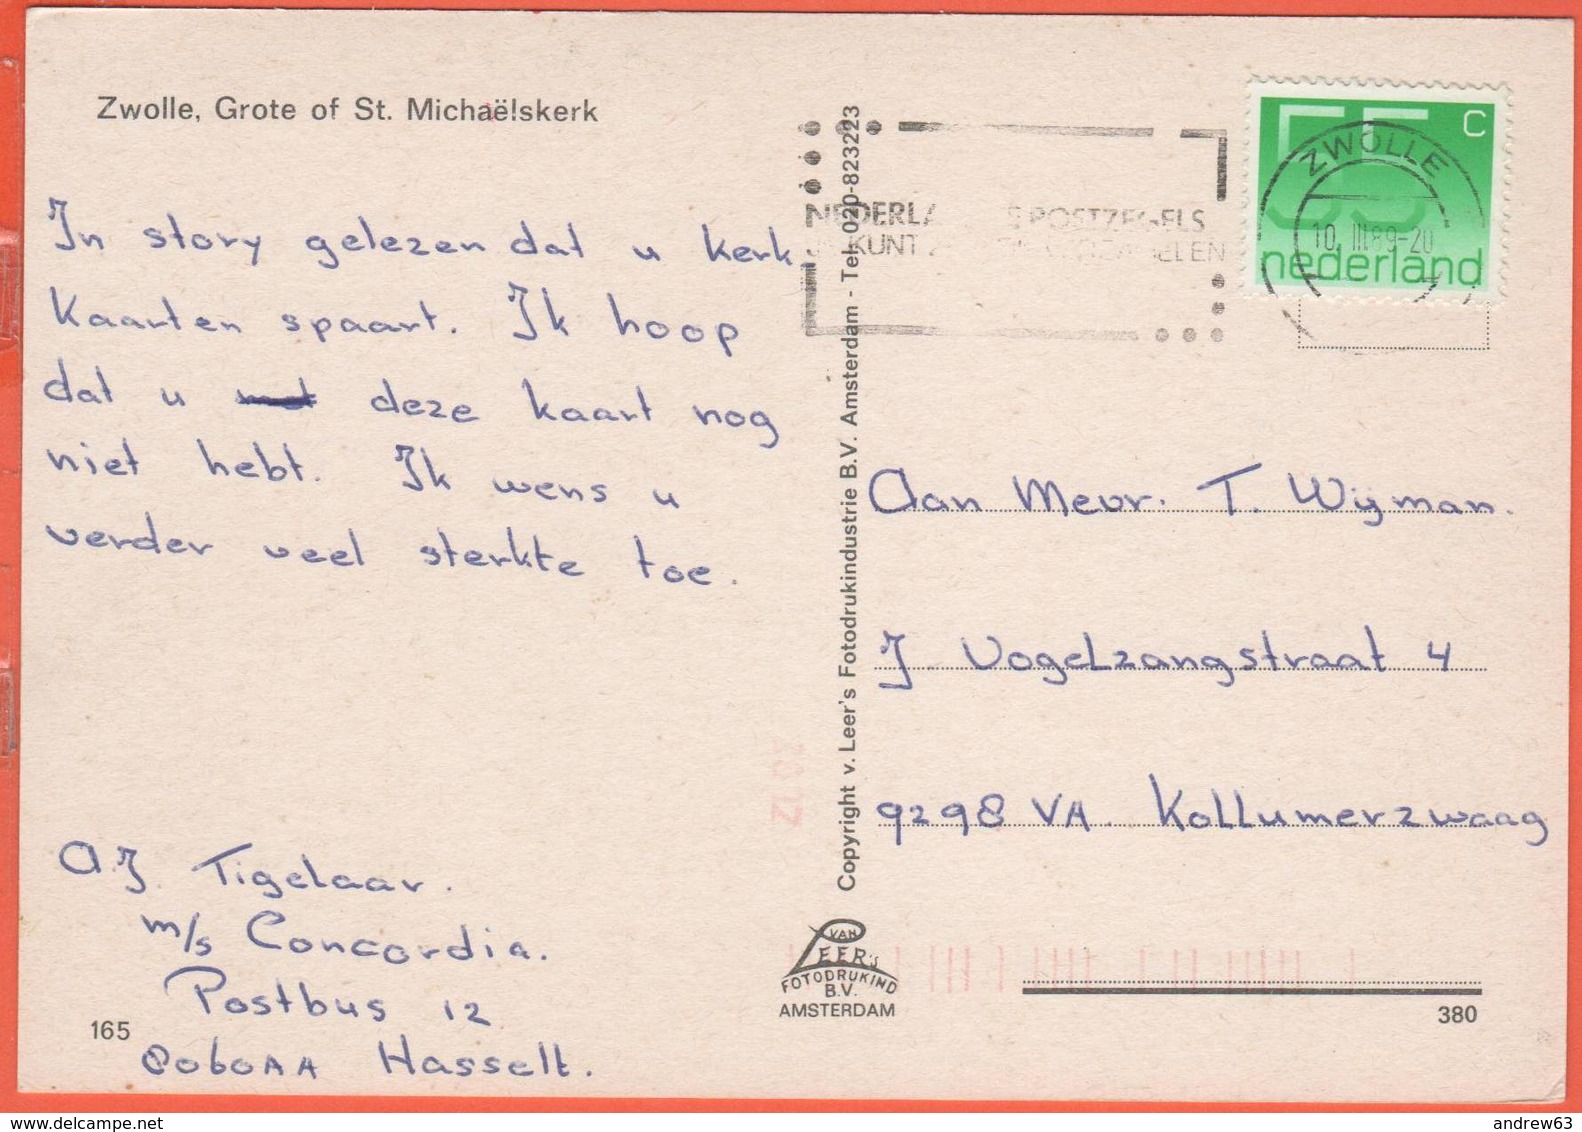 Zwolle, Grote of St. Michaëlskerk
In story gelezen dat u kerk
kaarten spaart. Ik hoop
dat u deze kaart nog
niet hebt. Ik wens u
verder veel sterkte toe.
A.J. Tigelaar.
m/s Concordia.
Postbus 12
8060AA Hasselt.
165
Copyright v. Leer's Fotodrukindustrie B.V. Amsterdam - Tel. 020-823223
VAN
LEER'S
FOTODRUKIND
B.V.
AMSTERDAM
POSTZEGELS
KUNT
55 c
nederland
ZWOLLE
10.III.89-20
Aan Mevr. T. Wijman.
J Vogelzangstraat 4
9298 VA. Kollumerzwaag
380
www.delcampe.net
andrew63